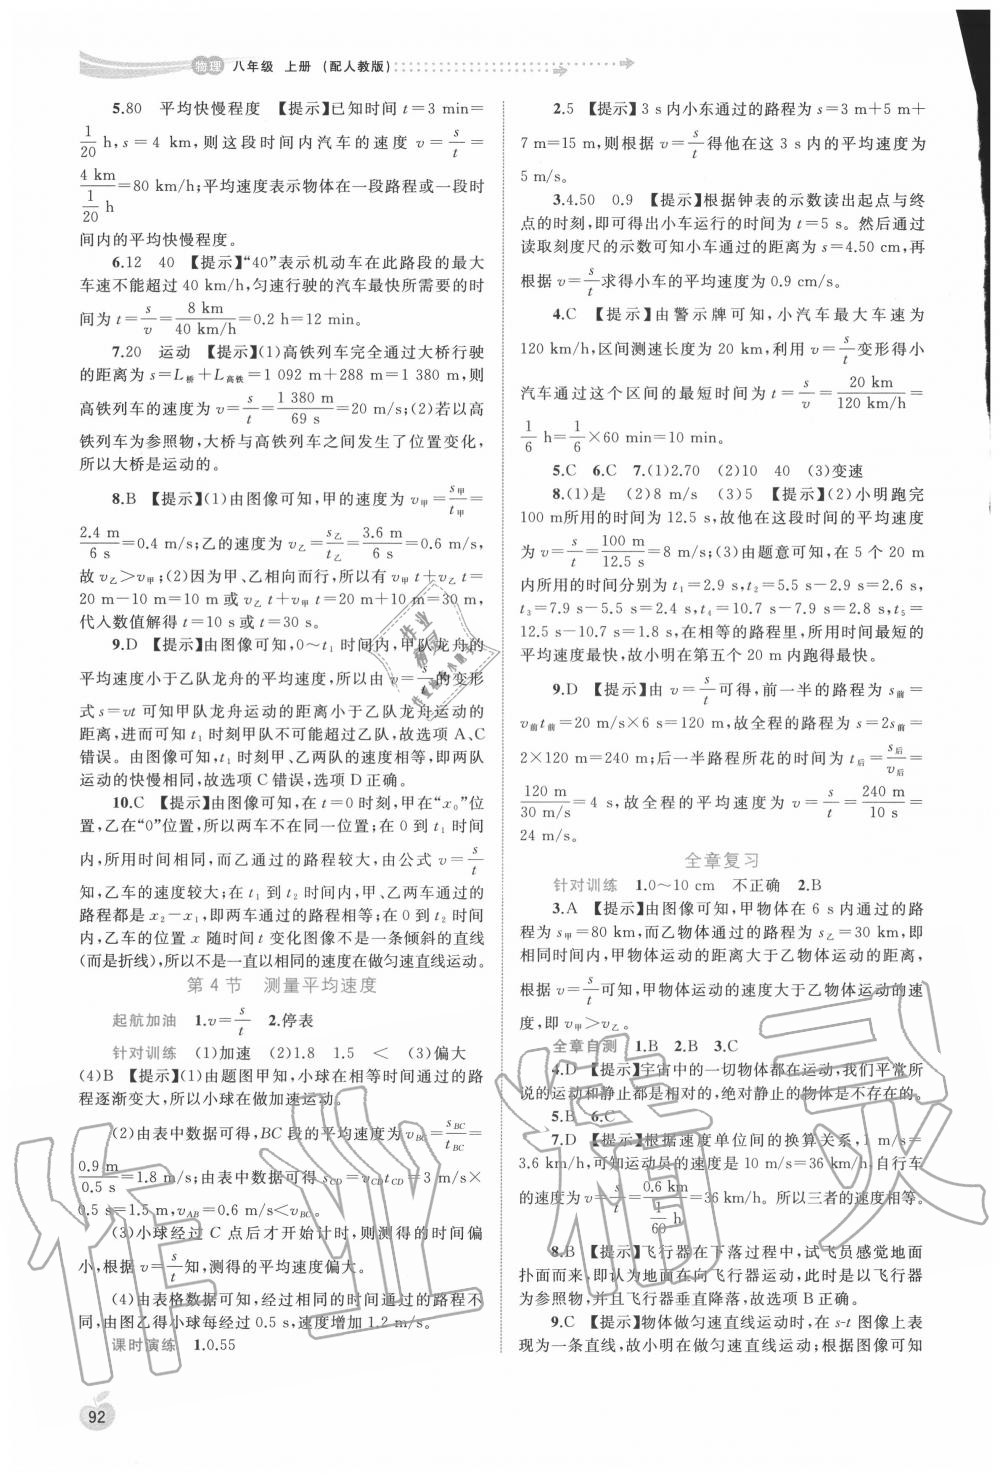 物理 八年级 上册 (配人教版)
5.80 平均快慢程度 【提示】已知时间 t=3 min=
1/20 h,s=4 km,则这段时间内汽车的速度 v=s/t=
4 km/(1/20 h)=80 km/h;平均速度表示物体在一段路程或一段时
间内的平均快慢程度。
6.12 40 【提示】“40”表示机动车在此路段的最大
车速不能超过 40 km/h,匀速行驶的汽车最快所需要的时
间为 t=s/v=8 km/(40 km/h)=0.2 h=12 min。
7.20 运动 【提示】(1)高铁列车完全通过大桥行驶
的距离为 s=L桥+L高铁=1 092 m+288 m=1 380 m,则
高铁列车的速度为 v=s/t=1 380 m/69 s=20 m/s;(2)若以高
铁列车为参照物,大桥与高铁列车之间发生了位置变化,
所以大桥是运动的。
8.B 【提示】(1)由图像可知,甲的速度为 v甲=s甲/t甲=
2.4 m/6 s=0.4 m/s;乙的速度为 v乙=s乙/t乙=3.6 m/6 s=0.6 m/s,
故 v乙>v甲;(2)因为甲、乙相向而行,所以有 v甲t+v乙t=
20 m-10 m=10 m 或 v乙t+v甲t=20 m+10 m=30 m,
代入数值解得 t=10 s 或 t=30 s。
9.D 【提示】由图像可知,0～t₁ 时间内,甲队龙舟的
平均速度小于乙队龙舟的平均速度,所以由 v=s/t 的变形
式 s=vt 可知甲队龙舟运动的距离小于乙队龙舟运动的
距离,进而可知 t₁ 时刻甲队不可能超过乙队,故选项 A、C
错误。由图像可知,t₁ 时刻甲、乙两队的速度相等,即两队
运动的快慢相同,故选项 C 错误,选项 D 正确。
10.C 【提示】由图像可知,在 t=0 时刻,甲在“x₀”位
置,乙在“0”位置,所以两车不在同一位置;在 0 到 t₁ 时间
内,所用时间相同,而乙通过的路程较大,由公式 v=s/t
知,乙车的速度较大;在 t₁ 到 t₂ 时间内,甲、乙两车通过的
路程都是 x₂-x₁,即两车通过的路程相等;在 0 到 t₂ 时间
内,乙车的位置 x 随时间 t 变化图像不是一条倾斜的直线
(而是折线),所以不是一直以相同的速度在做匀速直线运动。
第 4 节 测量平均速度
起航加油 1.v=s/t 2.停表
针对训练 (1)加速 (2)1.8 1.5 < (3)偏大
(4)B 【提示】(1)由题图甲知,小球在相等时间通过的路
程逐渐变大,所以小球在做加速运动。
(2)由表中数据可得,BC 段的平均速度为 vBC=sBC/tBC=
0.9 m/0.5 s=1.8 m/s;由表中数据可得 sCD=vCDtCD=3 m/s×
0.5 s=1.5 m,vAB=0.6 m/s<vBC。
(3)小球经过 C 点后才开始计时,则测得的时间偏
小,根据 v=s/t 知,测得的平均速度偏大。
(4)由表格数据可知,经过相同的时间通过的路程不
同,由图乙得小球每经过 0.5 s,速度增加 1.2 m/s。
课时演练 1.0.55
2.5 【提示】3 s 内小东通过的路程为 s=3 m+5 m+
7 m=15 m,则根据 v=s/t 得他在这 3 s 内的平均速度为
5 m/s。
3.4.50 0.9 【提示】根据钟表的示数读出起点与终
点的时刻,即可得出小车运行的时间为 t=5 s。然后通过
读取刻度尺的示数可知小车通过的距离为 s=4.50 cm,再
根据 v=s/t 求得小车的平均速度为 0.9 cm/s。
4.C 【提示】由警示牌可知,小汽车最大车速为
120 km/h,区间测速长度为 20 km,利用 v=s/t 变形得小
汽车通过这个区间的最短时间为 t=s/v=20 km/(120 km/h)=
1/6 h=1/6×60 min=10 min。
5.C 6.C 7.(1)2.70 (2)10 40 (3)变速
8.(1)是 (2)8 m/s (3)5 【提示】(2)小明跑完
100 m所用的时间为 12.5 s,故他在这段时间的平均速度
为 v=s/t=100 m/12.5 s=8 m/s;(3)由题意可知,在 5 个 20 m
内所用的时间分别为 t₁=2.9 s,t₂=5.5 s-2.9 s=2.6 s,
t₃=7.9 s-5.5 s=2.4 s,t₄=10.7 s-7.9 s=2.8 s,t₅=
12.5 s-10.7 s=1.8 s,在相等的路程里,所用时间最短的
平均速度最快,故小明在第五个 20 m 内跑得最快。
9.D 【提示】由 v=s/t 可得,前一半的路程为 s前=
v前t前=20 m/s×6 s=120 m,故全程的路程为 s=2s前=
2×120 m=240 m;后一半路程所花的时间为 t后=s后/v后=
120 m/(30 m/s)=4 s,故全程的平均速度为 v=s/t=240 m/10 s=
24 m/s。
全章复习
针对训练 1.0～10 cm 不正确 2.B
3.A 【提示】由图像可知,甲物体在 6 s 内通过的路
程为 s甲=80 km,而乙物体通过的路程为 s乙=30 km,即
相同时间内,甲物体运动的距离大于乙物体运动的距离,
根据 v=s/t 可知,甲物体运动的速度大于乙物体运动的速
度,即 v甲>v乙。
全章自测 1.B 2.B 3.C
4.D 【提示】宇宙中的一切物体都在运动,我们平常所
说的运动和静止都是相对的,绝对静止的物体是不存在的。
5.B 6.C
7.D 【提示】根据速度单位间的换算关系,1 m/s=
3.6 km/h,可知运动员的速度是 10 m/s=36 km/h,自行车
的速度为 v=s/t=0.6 km/(1/60 h)=36 km/h。所以三者的速度相等。
8.B 【提示】飞行器在下落过程中,试飞员感觉地面
扑面而来,即认为地面在向飞行器运动,此时是以飞行器
为参照物,并且飞行器垂直降落,故选项 B 正确。
9.C 【提示】物体做匀速直线运动时,在 s-t 图像上表
现为一条直线,故小明在做匀速直线运动;根据图像可知
92
作业精灵